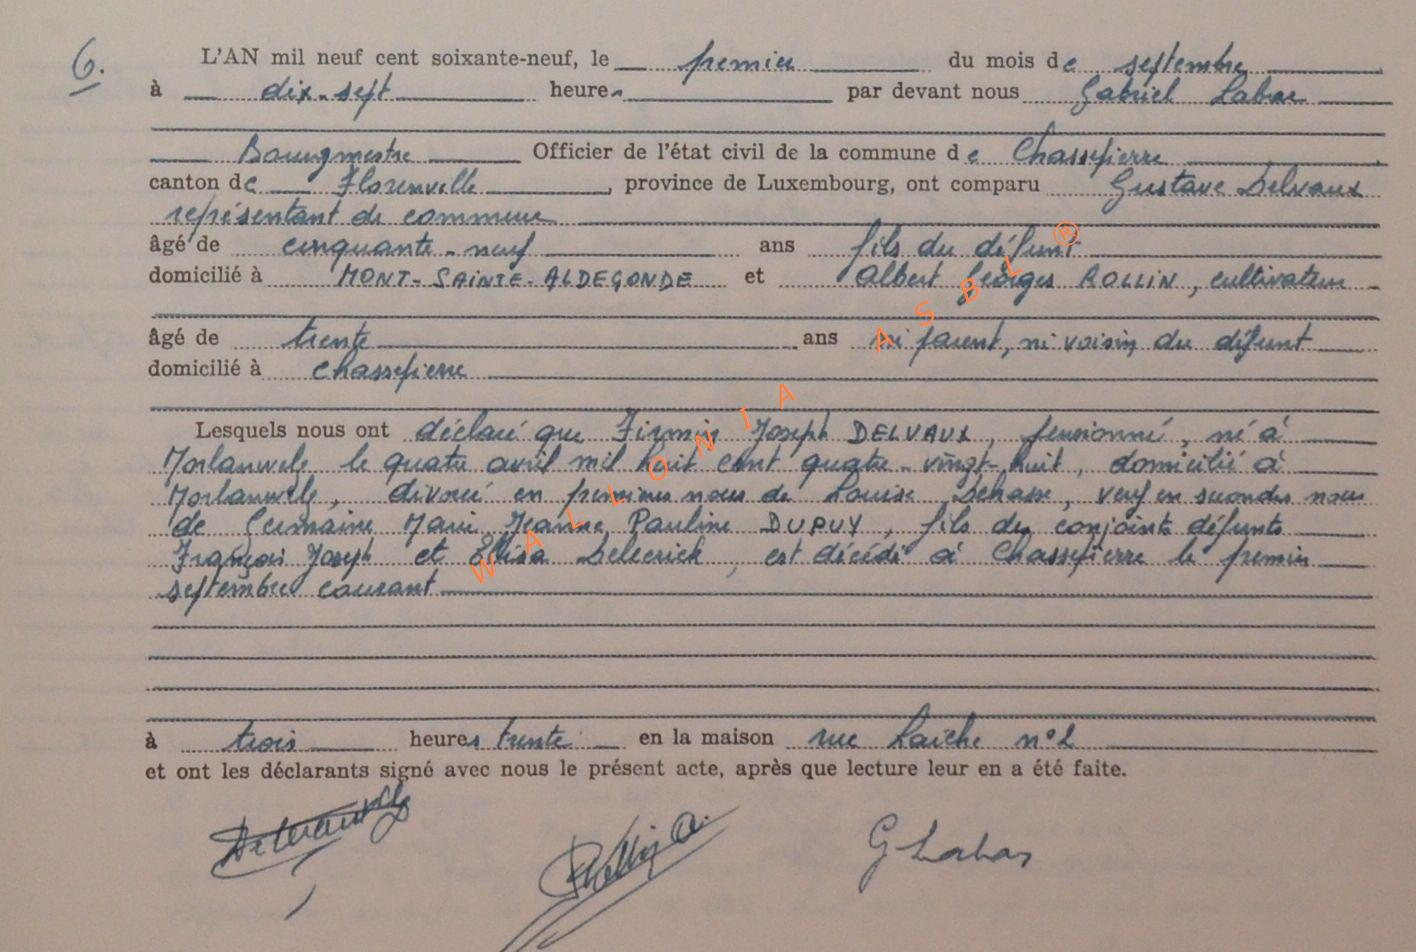 6.
L'AN mil neuf cent soixante-neuf, le premier du mois de septembre
à dix-sept heures par devant nous Gabriel Labar
Bourgmestre Officier de l'état civil de la commune de Chassepierre
canton de Florenville, province de Luxembourg, ont comparu Gustave Delvaux
représentant de commerce
âgé de cinquante-neuf ans fils du défunt
domicilié à MONT-SAINTE-ALDEGONDE et Albert Georges ROLLIN, cultivateur
âgé de trente ans ni parent, ni voisin du défunt
domicilié à Chassepierre
Lesquels nous ont déclaré que Firmin Joseph DELVAUX, pensionné, né à
Morlanwelz le quatre avril mil huit cent quatre-vingt-huit, domicilié à
Morlanwelz, divorcé en premières noces de Louise Dehasse, veuf en secondes noces
de Germaine Marie Jeanne Pauline DUPUY, fils des conjoints défunts
François Joseph et Elisa , est décédé à Chassepierre le premier
septembre courant
à trois heures trente en la maison rue Laiche n° 2
et ont les déclarants signé avec nous le présent acte, après que lecture leur en a été faite.
Rollin A.
G Labar
WALLONIA ASBL ®